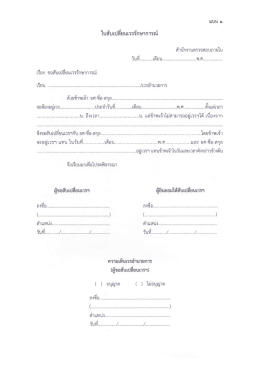 แบบ ๑
ใบสับเปลี่ยนเวรรักษาการณ์
สำนักงานตรวจสอบภายใน
วันที่..........เดือน......................พ.ศ.................
เรื่อง ขอสับเปลี่ยนเวรรักษาการณ์
เรียน ............................................................เวรอำนวยการ
ด้วยข้าพเจ้า ยศ-ชื่อ-สกุล............................................................
จะต้องอยู่เวร......................ประจำวันที่..............เดือน......................พ.ศ...............ตั้งแต่เวลา
....................น. ถึงเวลา....................น. แต่ข้าพเจ้าไม่สามารถอยู่เวรได้ เนื่องจาก
............................................................
จึงขอสับเปลี่ยนเวรกับ ยศ-ชื่อ-สกุล............................................................โดยข้าพเจ้า
จะอยู่เวรฯ แทน ในวันที่..............เดือน......................พ.ศ...............และ ยศ-ชื่อ-สกุล
............................................................อยู่เวรฯ แทนข้าพเจ้าในวันและเวลาดังกล่าวข้างต้น
จึงเรียนมาเพื่อโปรดพิจารณา
ผู้ขอสับเปลี่ยนเวรฯ ผู้ยินยอมให้สับเปลี่ยนเวรฯ
ลงชื่อ.................................... ลงชื่อ....................................
(........................................) (........................................)
ตำแหน่ง.............................. ตำแหน่ง..............................
วันที่............/............/............ วันที่............/............/............
ความเห็นเวรอำนวยการ
(ผู้ขอสับเปลี่ยนเวรฯ)
( ) อนุญาต ( ) ไม่อนุญาต
ลงชื่อ....................................
(........................................)
ตำแหน่ง..............................
วันที่............/............/............